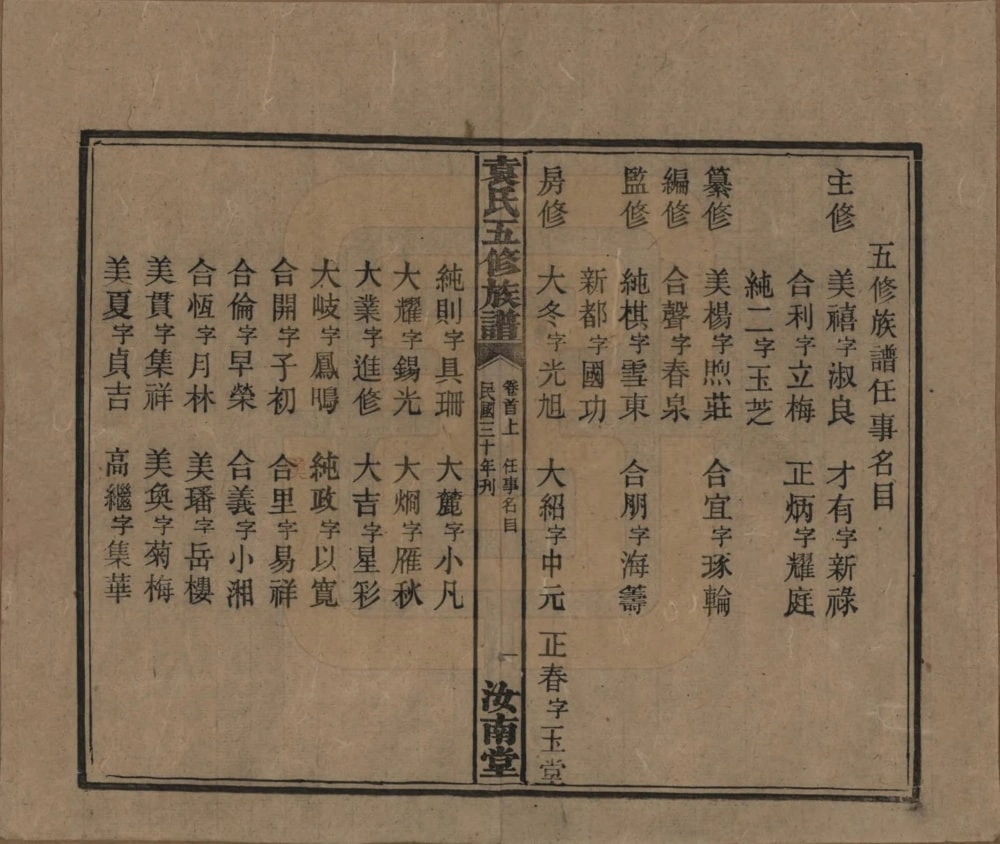 五修族譜任事名目
主修 美禧字淑良 才有字新祿
合利字立梅 正炳字耀庭
純二字玉芝
纂修 美楊字煦莊 合宜字琢輪
編修 合聲字春泉
監修 純棋字雪東 合朋字海籌
新都字國功
房修 大冬字光旭 大紹字中元 正春字玉堂
袁氏五修族譜 卷首上 任事名目 一 汝南堂
民國三十年刊
純則字具珊 大麓字小凡
大耀字錫光 大炯字雁秋
大業字進修 大吉字星彩
大岐字鳳鳴 純政字以寬
合開字子初 合里字易祥
合倫字早榮 合義字小湘
合恆字月林 美璠字岳樓
美貫字集祥 美奐字菊梅
美夏字貞吉 高繼字集華